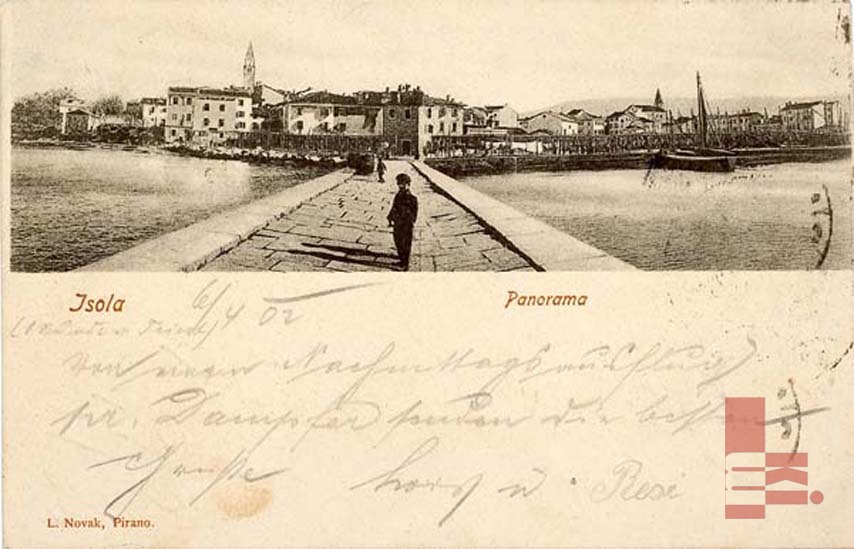 Isola
Panorama
6/4 02
Von einem Nachmittagsausflug
per Dampfer senden die besten
Grüsse
u. Resi
L. Novak, Pirano.